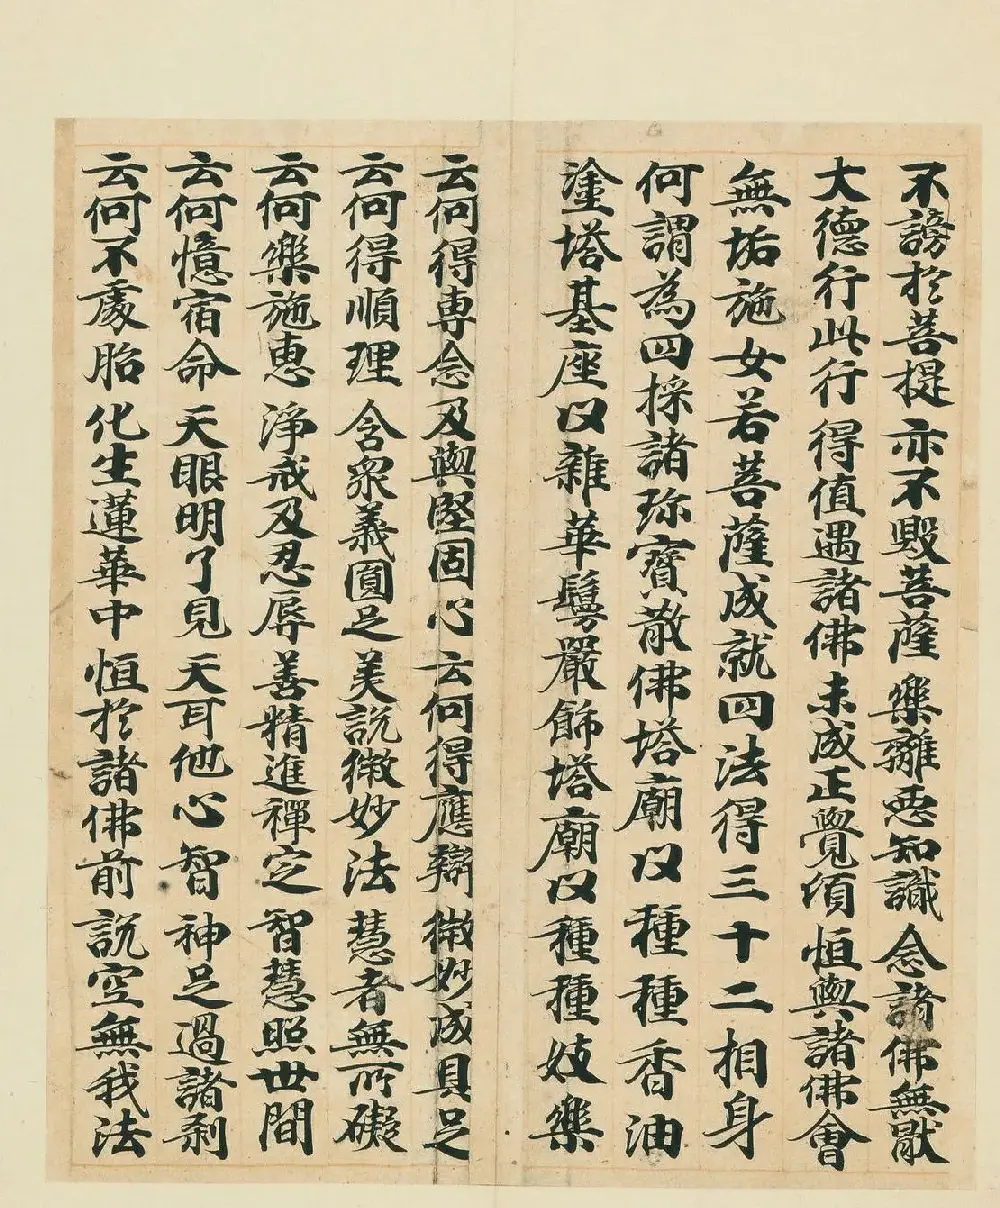 不謗於菩提 亦不毀菩薩 樂離惡知識 念諸佛無猒
大德行此行 得值遇諸佛 未成正覺須 恒與諸佛會
無垢施女若菩薩成就四法得三十二相身
何謂為四採諸珎寶散佛塔廟以種種香油
塗塔基座以雜華鬘嚴飾塔廟以種種妓樂
云何得專念 及與堅固心 云何得應辯 微妙成具足
云何得順理 含衆義圓足 美說微妙法 慧者無所礙
云何樂施惠 淨戒及忍辱 善精進禪定 智慧照世間
云何憶宿命 天眼明了見 天耳他心智 神足過諸剎
云何不處胎 化生蓮華中 恒於諸佛前 說空無我法